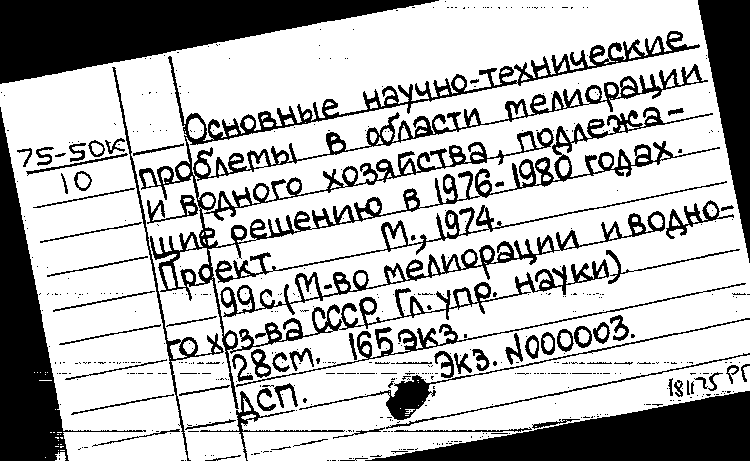 75-50к
10
Основные научно-технические
проблемы в области мелиорации
и водного хозяйства, подлежа-
щие решению в 1976-1980 годах.
Проект. М., 1974.
99 с. (М-во мелиорации и водно-
го хоз-ва СССР. Гл. упр. науки).
28см. 165 экз.
ДСП. Экз. N000003.